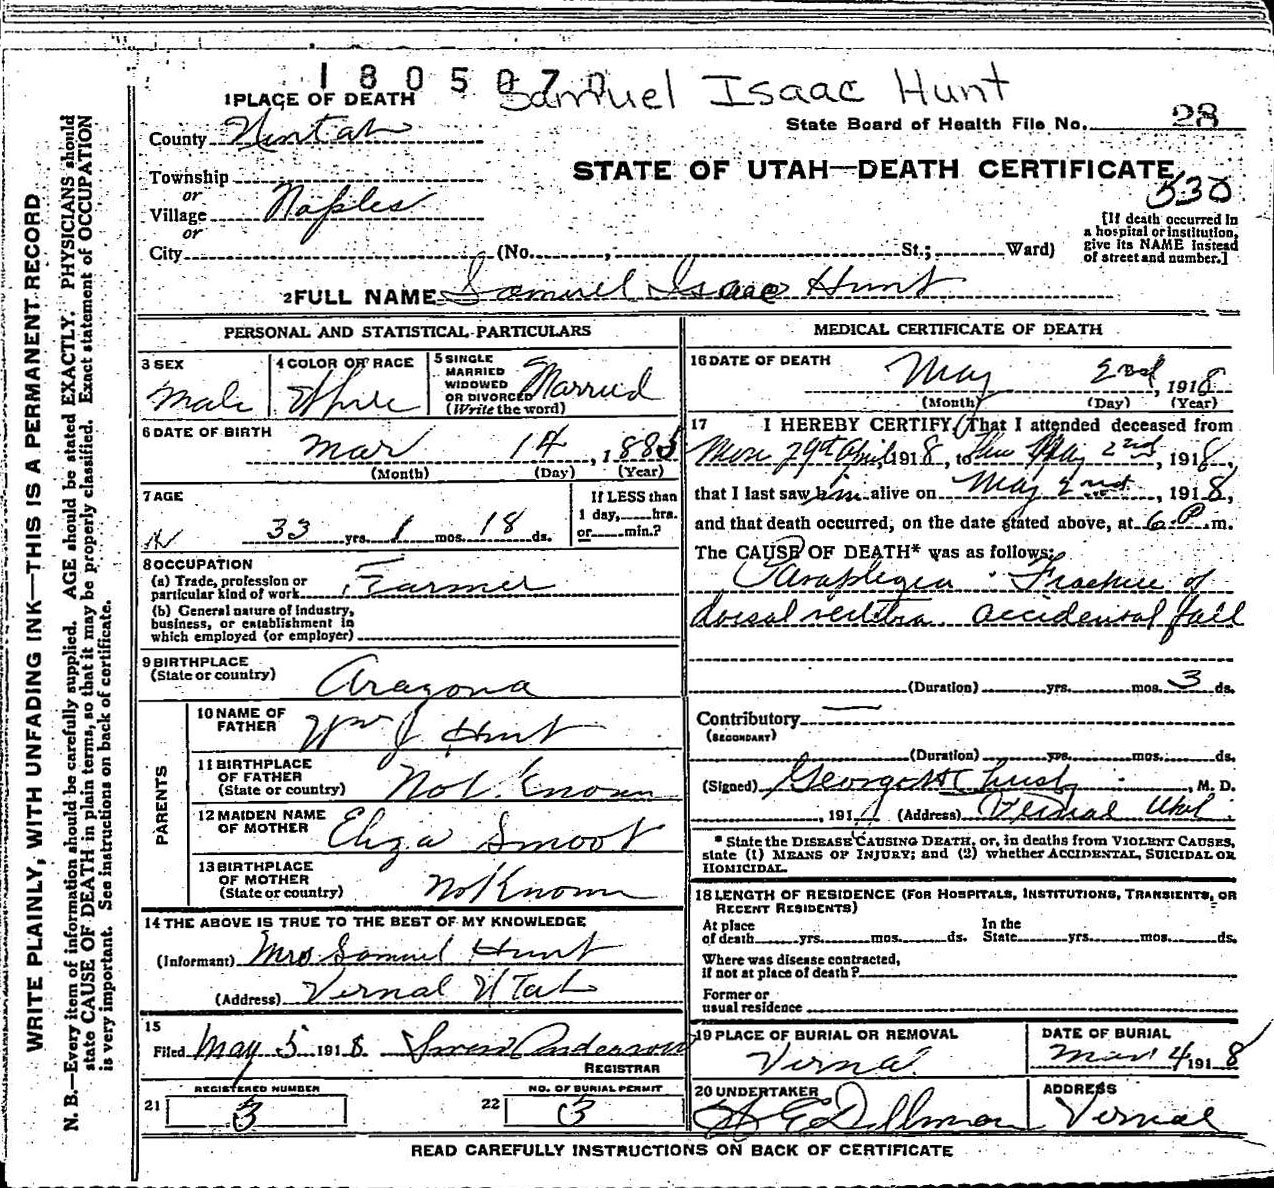 1805070
Samuel Isaac Hunt
1 PLACE OF DEATH
State Board of Health File No. 28
County Uintah
STATE OF UTAH—DEATH CERTIFICATE
530
Township
or
Village Naples
or
City (No. , St.; Ward)
[If death occurred in
a hospital or institution,
give its NAME instead
of street and number.]
2 FULL NAME Samuel Isaac Hunt
PERSONAL AND STATISTICAL PARTICULARS
3 SEX
Male
4 COLOR OR RACE
White
5 SINGLE
MARRIED
WIDOWED
OR DIVORCED
(Write the word)
Married
6 DATE OF BIRTH
Mar 14, 1885
(Month) (Day) (Year)
7 AGE
33 yrs. 1 mos. 18 ds.
If LESS than
1 day, hrs.
or min.?
8 OCCUPATION
(a) Trade, profession or
particular kind of work Farmer
(b) General nature of industry,
business, or establishment in
which employed (or employer)
9 BIRTHPLACE
(State or country) Aragona
PARENTS
10 NAME OF
FATHER Wm J Hunt
11 BIRTHPLACE
OF FATHER
(State or country) Not Known
12 MAIDEN NAME
OF MOTHER Eliza Smoot
13 BIRTHPLACE
OF MOTHER
(State or country) Not Known
14 THE ABOVE IS TRUE TO THE BEST OF MY KNOWLEDGE
(Informant) Mrs Samuel Hunt
(Address) Vernal Utah
15
Filed May 5 1918. Anderson
REGISTRAR
REGISTERED NUMBER
21 3
NO. OF BURIAL PERMIT
22 3
MEDICAL CERTIFICATE OF DEATH
16 DATE OF DEATH
May 2nd, 1918
(Month) (Day) (Year)
17 I HEREBY CERTIFY, (That I attended deceased from
29th April, 1918, to May 2nd, 1918,
that I last saw him alive on May 2nd, 1918,
and that death occurred, on the date stated above, at 6 P. m.
The CAUSE OF DEATH* was as follows:
Paraplegia Fracture of
dorsal vertebra accidental fall
(Duration) yrs. mos. 3 ds.
Contributory
(SECONDARY)
(Duration) yrs. mos. ds.
(Signed) George H Christy, M. D.
, 191 (Address) Vernal Utah
* State the DISEASE CAUSING DEATH, or, in deaths from VIOLENT CAUSES,
state (1) MEANS OF INJURY; and (2) whether ACCIDENTAL, SUICIDAL OR
HOMICIDAL.
18 LENGTH OF RESIDENCE (FOR HOSPITALS, INSTITUTIONS, TRANSIENTS, OR
RECENT RESIDENTS)
At place
of death yrs. mos. ds.
In the
State yrs. mos. ds.
Where was disease contracted,
if not at place of death?
Former or
usual residence
19 PLACE OF BURIAL OR REMOVAL
Vernal
DATE OF BURIAL
May 4 1918
20 UNDERTAKER
Dillman
ADDRESS
Vernal
READ CAREFULLY INSTRUCTIONS ON BACK OF CERTIFICATE
WRITE PLAINLY, WITH UNFADING INK—THIS IS A PERMANENT RECORD
N. B.—Every item of information should be carefully supplied. AGE should be stated EXACTLY. PHYSICIANS should
state CAUSE OF DEATH in plain terms, so that it may be properly classified. Exact statement of OCCUPATION
is very important. See instructions on back of certificate.